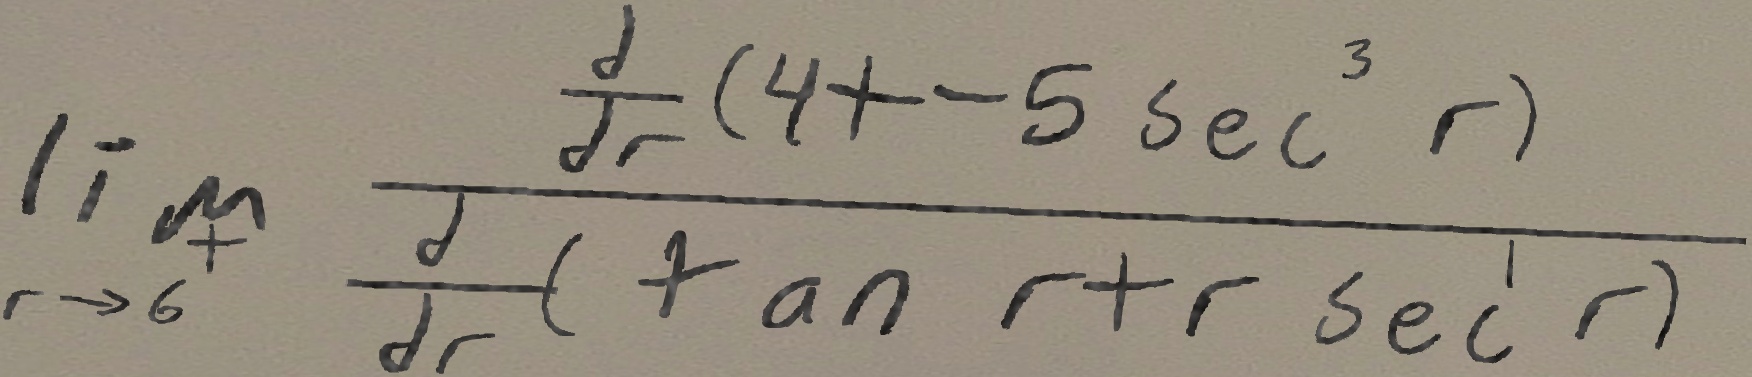 \lim_{r \to 6^+} \frac{\frac{d}{dr}(4+-5 \sec^3 r)}{\frac{d}{dr}(\tan r+r \sec^1 r)}